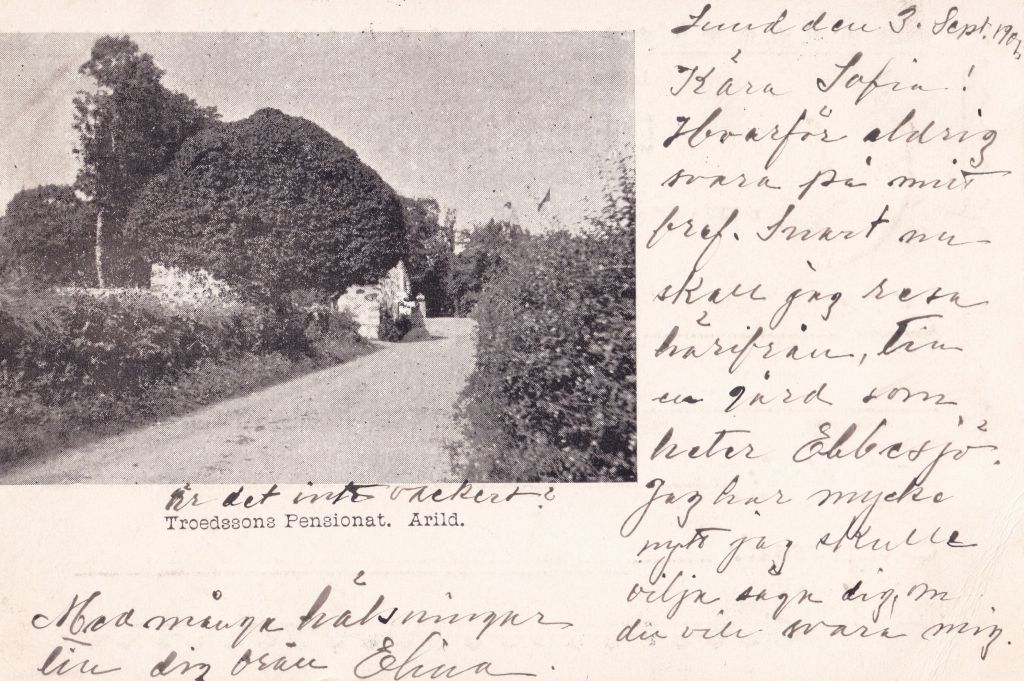 Lund den 3. Sept. 190
Kära Sofia!
Hvarför aldrig
svara på mitt
bref. Snart nu
skall jag resa
härifrån, till
en gård som
heter Ebbesjö.
Jag har mycke
nytt jag skulle
vilja säga dig, om
du vill svara mig.
Är det inte vackert?
Troedssons Pensionat. Arild.
Med många hälsningar
till dig från Elina.